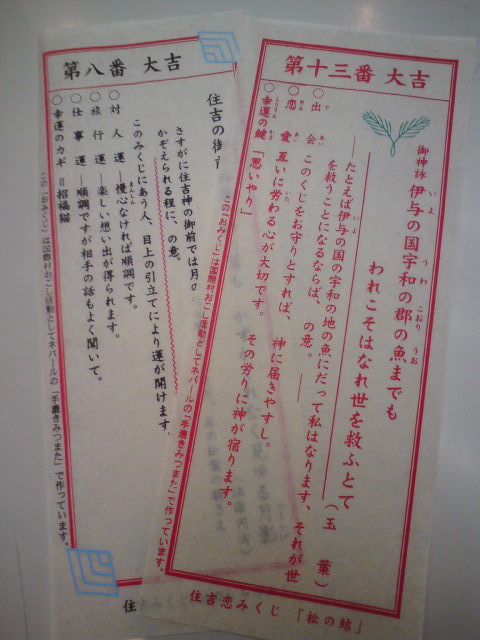 第十三番 大吉
御神詠
伊与の国宇和の郡の魚までも
われこそはなれ世を救ふとて
(玉葉)
―たとえば伊与の国の宇和の地の魚にだって私はなります、それが世
を救うことになるならば、の意。―
○出会 このくじをお守りとすれば、神に届きやすし。
○恋愛 互いに労わる心が大切です。その労りに神が宿ります。
○幸運の鍵 「思いやり」
この「おみくじ」は国際村おこし活動としてネパールの「手漉きみつまた」で作っています。
住吉恋みくじ 「松の結」
第八番 大吉
住吉の
さすがに住吉神の御前では月の
かぞえられる程に、の意。
このみくじにあう人、目上の引立てにより運が開けます
○対人運―慢心なければ順調です。
○旅行運―楽しい想い出が得られます。
○仕事運―順調ですが相手の話もよく聞いて。
○幸運のカギ=招福猫
この「おみくじ」は国際村おこし活動としてネパールの「手漉きみつまた」で作っています。
住